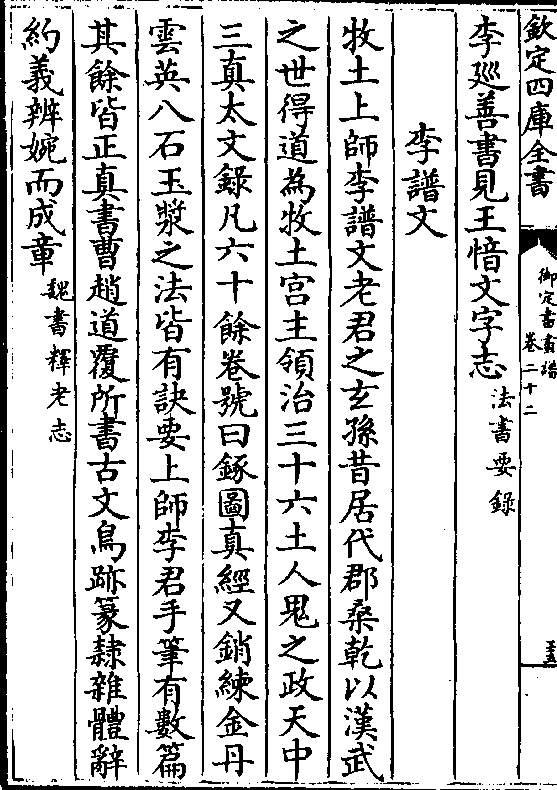 欽定四庫全書
御定書畫譜
卷二十二
李㢟善書見王愔文字志法書要錄
李譜文
牧土上師李譜文老君之玄孫昔居代郡桑乾以漢武
之世得道為牧土宫主領治三十六土人鬼之政天中
三真太文錄凡六十餘卷號曰錄圖真經又銷練金丹
雲英八石玉漿之法皆有訣要上師李君手筆有數篇
其餘皆正真書曹趙道覆所書古文鳥跡篆隸雜體辭
約義辨婉而成章魏書釋老志